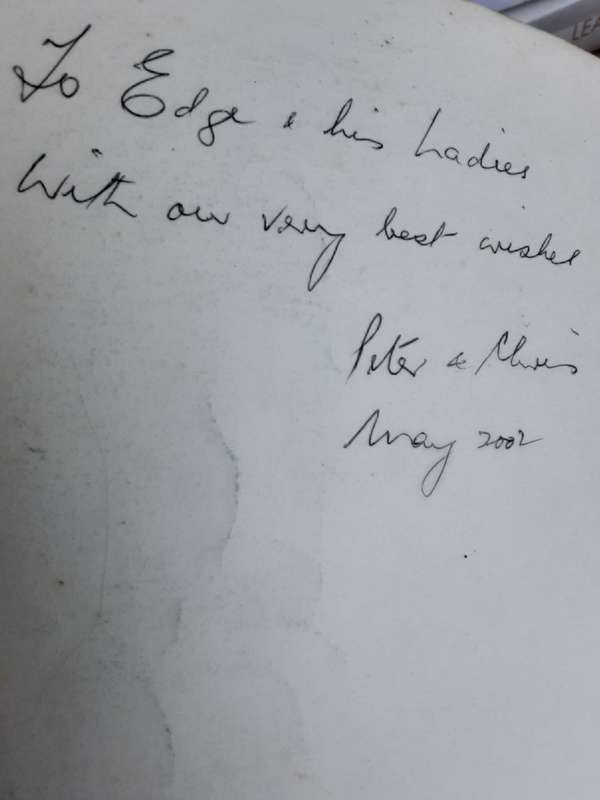 To Edge & his Ladies
With our very best wishes
Peter & Chris
May 2002
LEA